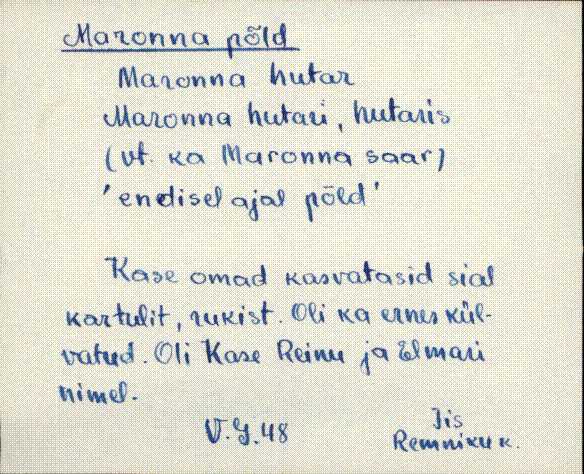 Maronna põld
Maronna hutar
Maronna hutari, hutaris
(vt. ka Maronna saar)
'endisel ajal põld'
Kase omad kasvatasid sial
kartulit, rukist. Oli ka ernes kül-
vatud. Oli Kase Reinu ja Elmari
nimel.
V.G.48
Jis
Remniku k.